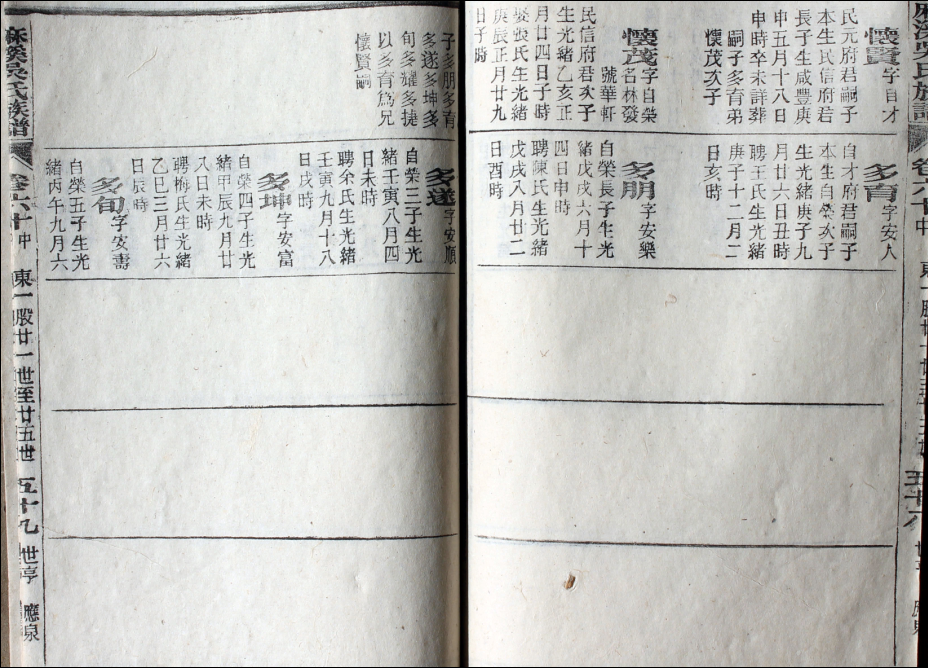 懷賢字自才
民元府君嗣子
本生民信府君
長子生咸豐庚
申五月十八日
申時卒未詳葬
嗣子多育弟
懷茂次子
懷茂字自榮
名林發
號華軒
民信府君次子
生光緒乙亥正
月廿四日子時
娶張氏生光緒
庚辰正月廿九
日子時
多育字安人
自才府君嗣子
本生自榮次子
生光緒庚子九
月廿六日丑時
聘王氏生光緒
庚子十二月二
日亥時
多朋字安樂
自榮長子生光
緒戊戌六月十
四日申時
聘陳氏生光緒
戊戌八月廿二
日酉時
卷六十中
子多朋多育
多遂多坤多
旬多耀多捷
以多育爲兄
懷賢嗣
多遂字安順
自榮三子生光
緒壬寅八月四
日未時
聘余氏生光緒
壬寅九月十八
日戌時
多坤字安富
自榮四子生光
緒甲辰九月廿
八日未時
聘梅氏生光緒
乙巳三月廿六
日辰時
多旬字安壽
自榮五子生光
緒丙午九月六
麻溪吳氏族譜
卷六十中
東一股廿一世至廿五世
五十九
世亨
應泉